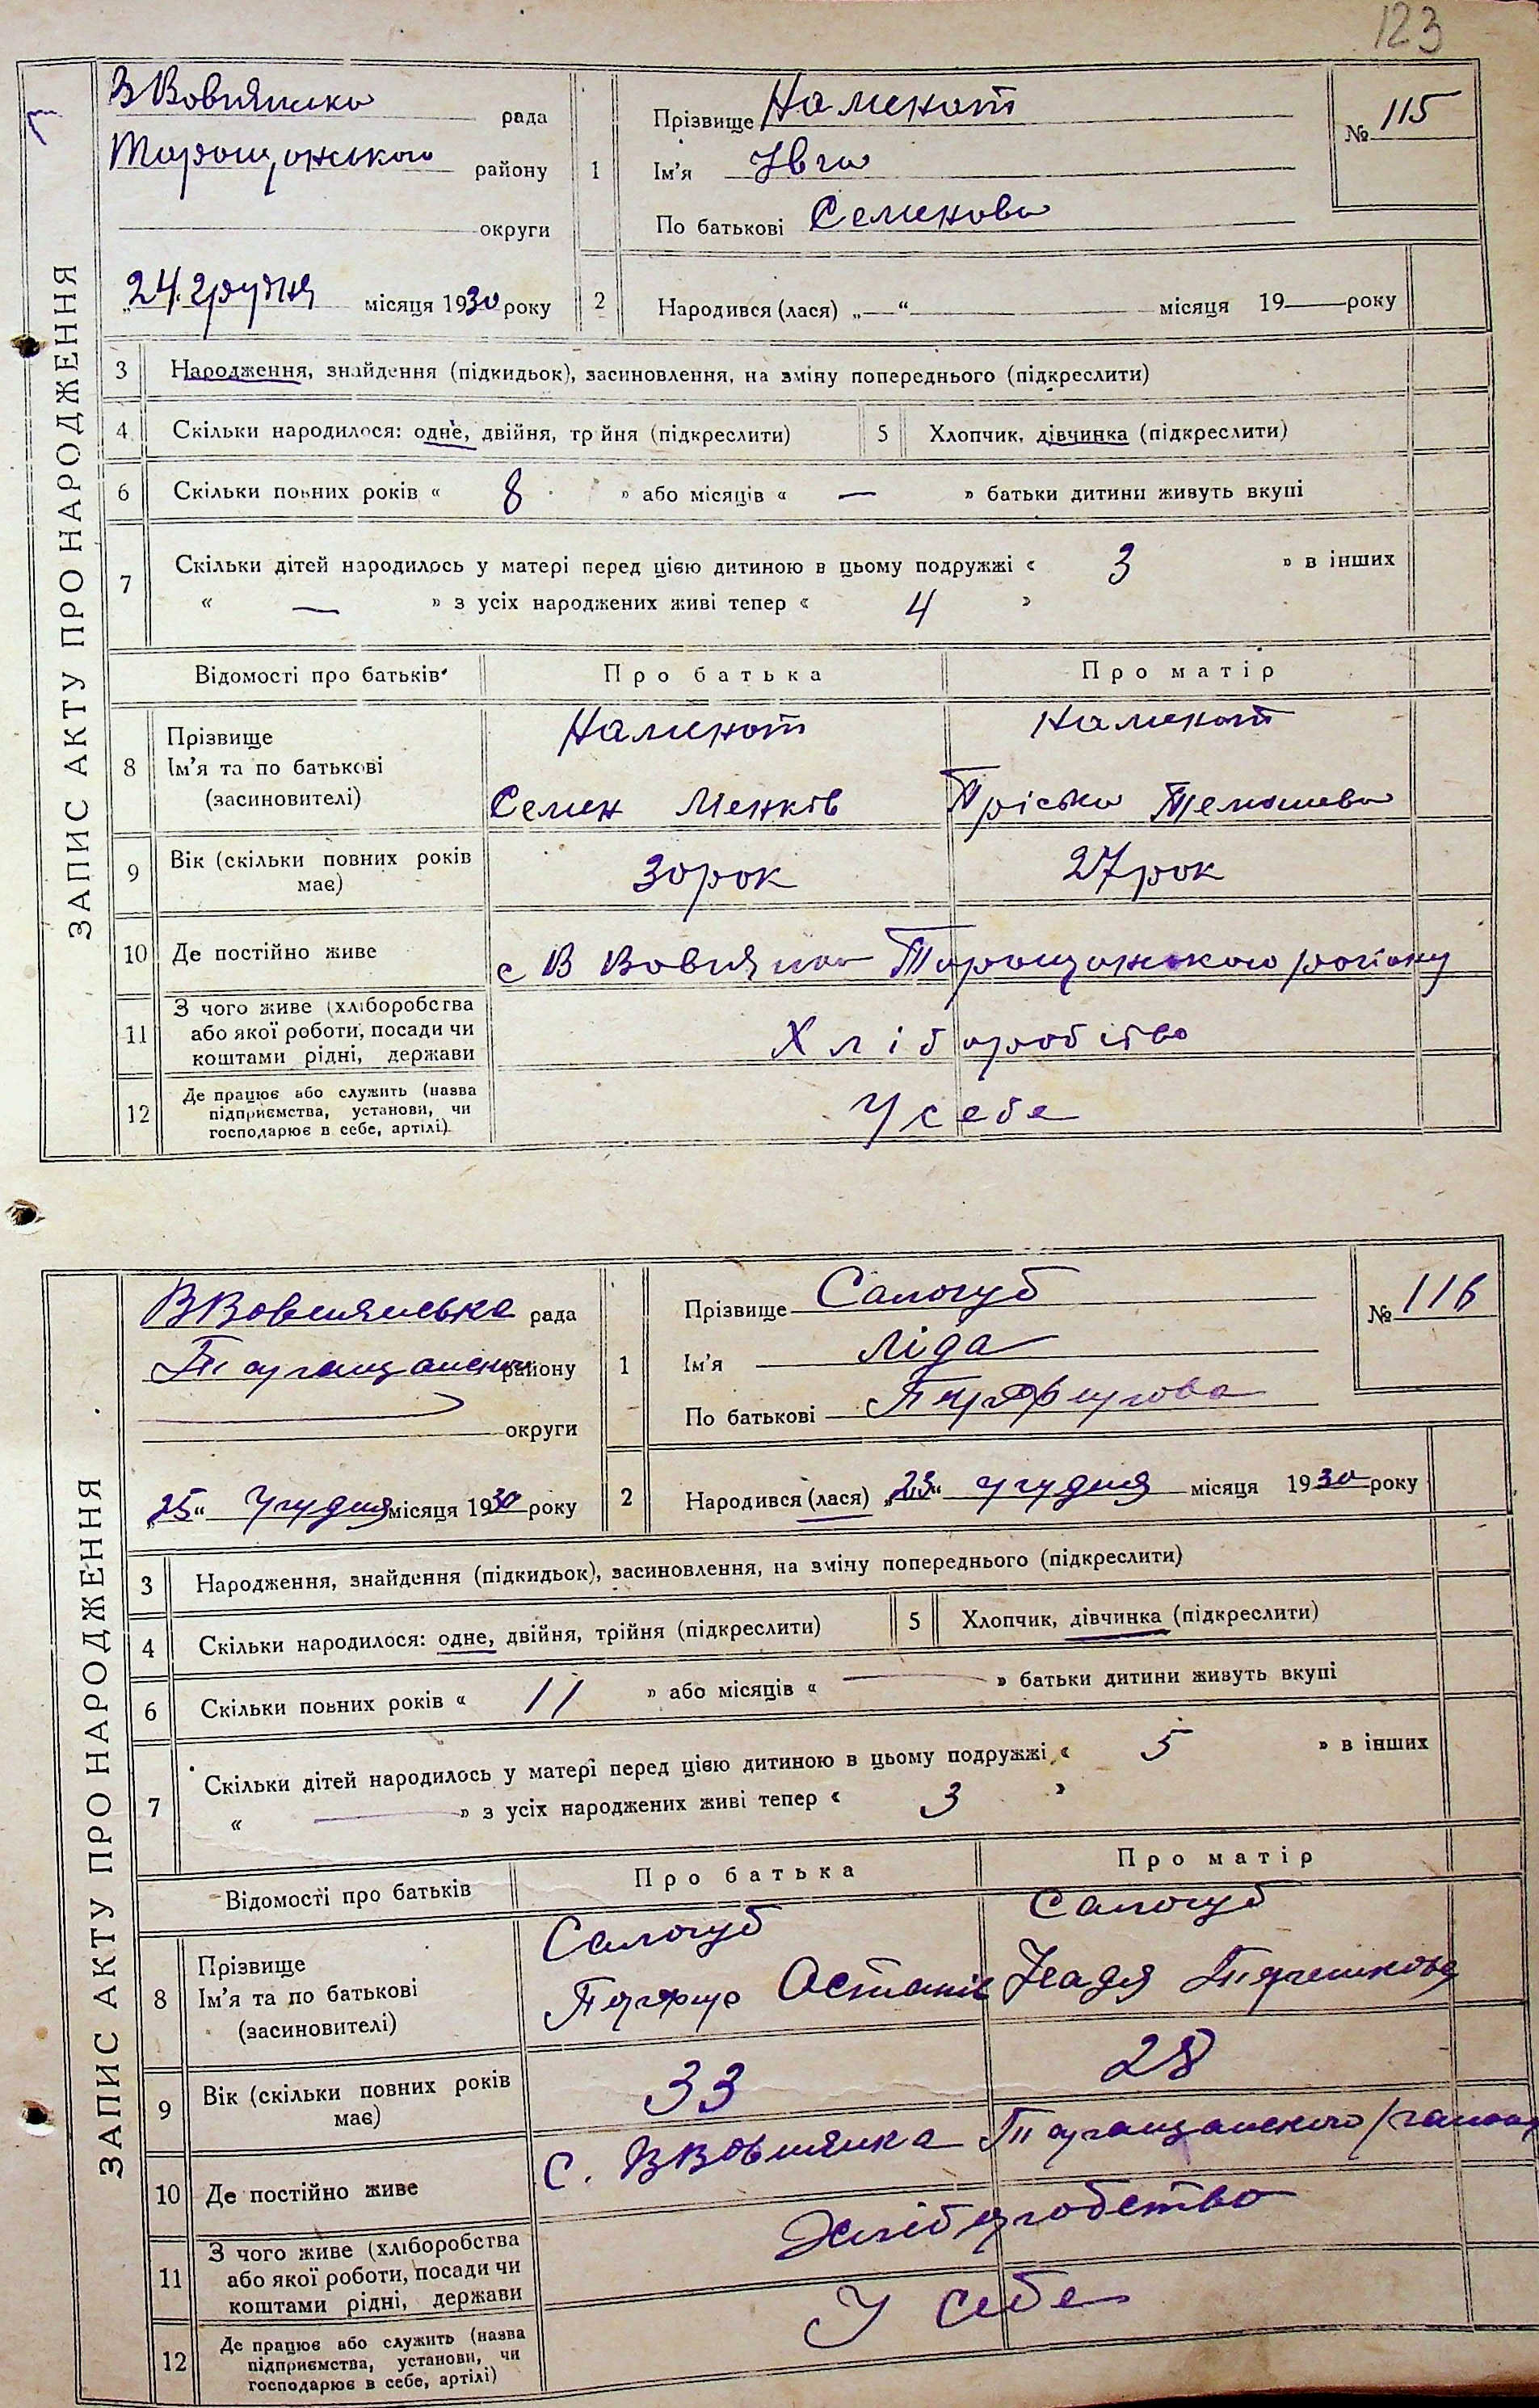 123
ЗАПИС АКТУ ПРО НАРОДЖЕННЯ
В Вовнянська рада
Таращанського району
округи
24 грудня місяця 1930 року
1
Прізвище Наменат
Ім'я Івга
По батькові Семенова
№ 115
2
Народився (лася) „—“ — місяця 19— року
3 Народження, знайдення (підкидьок), засиновлення, на зміну попереднього (підкреслити)
4 Скільки народилося: одне, двійня, тр йня (підкреслити) 5 Хлопчик, дівчинка (підкреслити)
6 Скільки повних років « 8 » або місяців « — » батьки дитини живуть вкупі
7 Скільки дітей народилось у матері перед цією дитиною в цьому подружжі « 3 » в інших
« — » з усіх народжених живі тепер « 4 »
Відомості про батьків Про батька Про матір
8 Прізвище
Ім'я та по батькові
(засиновителі)
Наменат Наменат
Семен Пріська
9 Вік (скільки повних років має)
30 рок 27 рок
10 Де постійно живе
с В Вовнянка Таращанського району
11 З чого живе (хліборобства або якої роботи, посади чи коштами рідні, держави
Хліборобство
12 Де працює або служить (назва підприємства, установи, чи господарює в себе, артілі)
У себе
ЗАПИС АКТУ ПРО НАРОДЖЕННЯ
В Вовнянська рада
Таращанськ району
округи
„25“ Грудня місяця 1930 року
1
Прізвище Салогуб
Ім'я Ліда
По батькові Парфирова
№ 116
2
Народився (лася) „23“ грудня місяця 1930 року
3 Народження, знайдення (підкидьок), засиновлення, на зміну попереднього (підкреслити)
4 Скільки народилося: одне, двійня, трійня (підкреслити) 5 Хлопчик, дівчинка (підкреслити)
6 Скільки повних років « 11 » або місяців « — » батьки дитини живуть вкупі
7 Скільки дітей народилось у матері перед цією дитиною в цьому подружжі « 5 » в інших
« — » з усіх народжених живі тепер « 3 »
Відомості про батьків Про батька Про матір
8 Прізвище
Ім'я та по батькові
(засиновителі)
Салогуб Салогуб
Парфир Остапів Надя
9 Вік (скільки повних років має)
33 28
10 Де постійно живе
С. В Вовнянка Таращанського району
11 З чого живе (хліборобства або якої роботи, посади чи коштами рідні, держави
Хліборобство
12 Де працює або служить (назва підприємства, установи, чи господарює в себе, артілі)
У себе